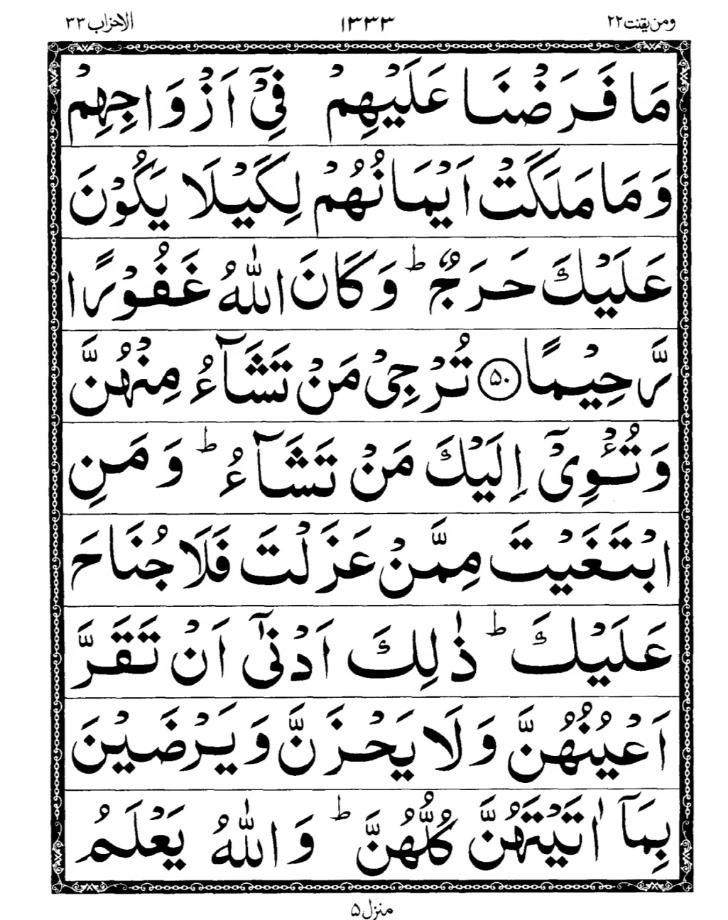 ومن یقنت ۲۲ ۱۳۳۳ الاحزاب ۳۳
مَا فَرَضْنَا عَلَيْهِمْ فِیْۤ اَزْوَاجِهِمْ
وَمَا مَلَكَتْ اَيْمَانُهُمْ لِكَيْلَا يَكُوْنَ
عَلَيْكَ حَرَجٌ ؕ وَكَانَ اللّٰهُ غَفُوْرًا
رَّحِيْمًا ﴿۵۰﴾ تُرْجِیْ مَنْ تَشَآءُ مِنْهُنَّ
وَتُـــْٔوِیْۤ اِلَيْكَ مَنْ تَشَآءُ ؕ وَمَنِ
ابْتَغَيْتَ مِمَّنْ عَزَلْتَ فَلَا جُنَاحَ
عَلَيْكَ ؕ ذٰلِكَ اَدْنٰۤی اَنْ تَقَرَّ
اَعْيُنُهُنَّ وَلَا يَحْزَنَّ وَيَرْضَيْنَ
بِمَاۤ اٰتَيْتَهُنَّ كُلُّهُنَّ ؕ وَاللّٰهُ يَعْلَمُ
منزل ۵